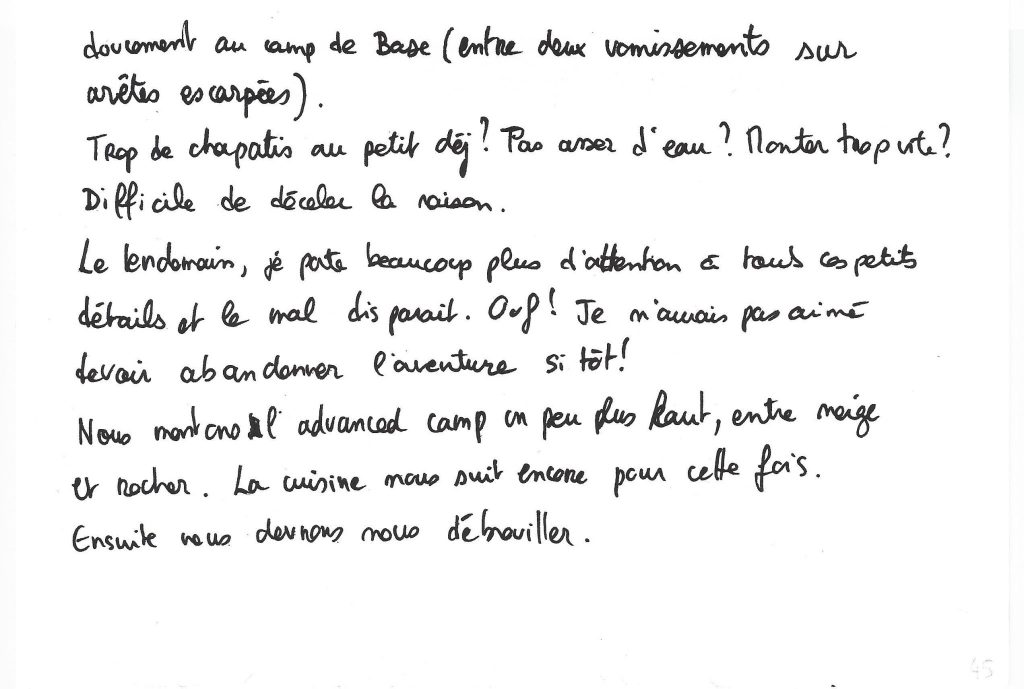 doucement au camp de Base (entre deux vomissements sur
arêtes escarpées).
Trop de chapatis au petit déj? Pas assez d'eau? Monter trop vite?
Difficile de déceler la raison.
Le lendemain, je porte beaucoup plus d'attention à tous ces petits
détails et le mal disparait. Ouf! Je n'aurais pas aimé
devoir abandonner l'aventure si tôt!
Nous montons l'advanced camp un peu plus haut, entre neige
et rocher. La cuisine nous suit encore pour cette fois.
Ensuite nous devrons nous débrouiller.
45